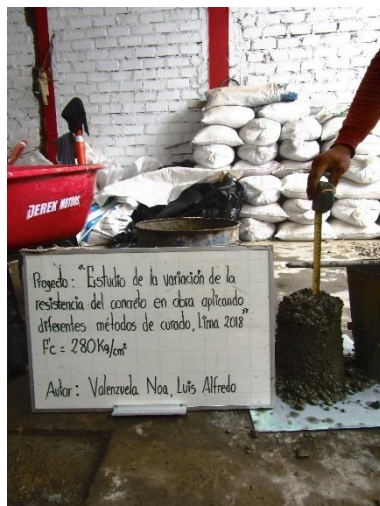 DEREK MOTORS.
Proyecto: "Estudio de la variación de la
resistencia del concreto en obra aplicando
diferentes métodos de curado, Lima 2018"
F'c = 280 Kg/cm²
Autor: Valenzuela Noa, Luis Alfredo